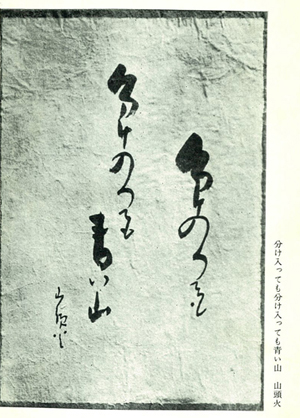 分け入っても分け入っても青い山　山頭火
分け入つても
分け入つても青い山
山頭火